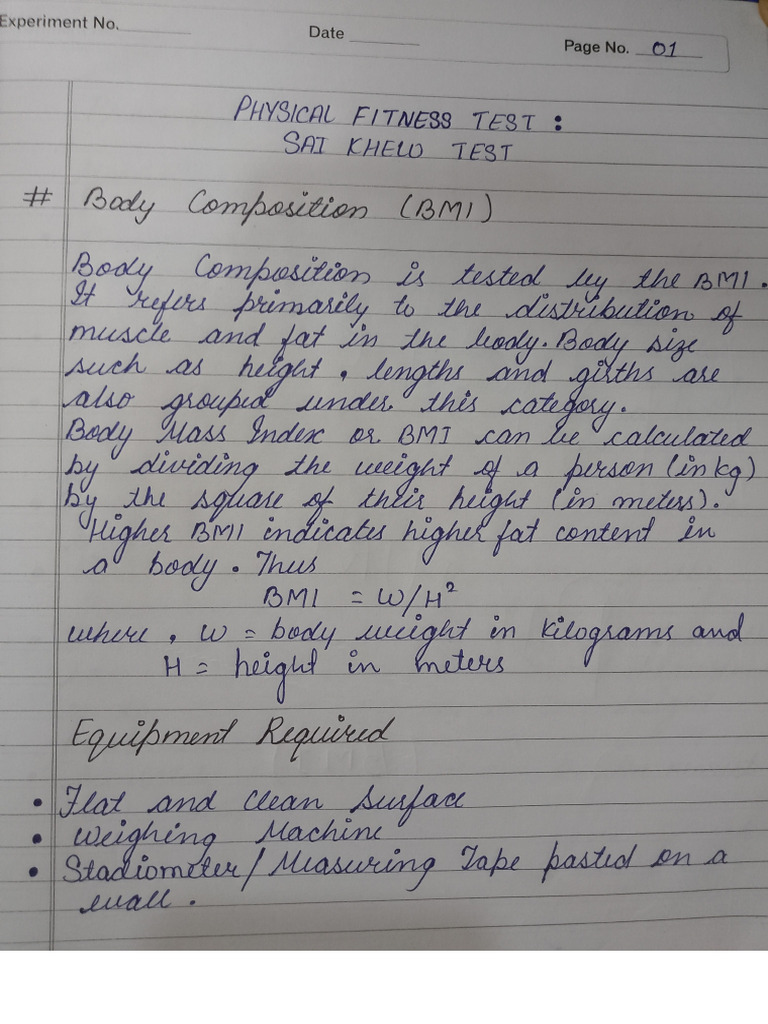 Experiment No.
Date
Page No. 01
PHYSICAL FITNESS TEST :
SAI KHELO TEST
# Body Composition (BMI)
Body Composition is tested by the BMI.
It refers primarily to the distribution of
muscle and fat in the body. Body size
such as height, lengths and girths are
also grouped under this category.
Body Mass Index or BMI can be calculated
by dividing the weight of a person (in kg)
by the square of their height (in meters).
Higher BMI indicates higher fat content in
a body. Thus
BMI = W/H²
where, W = body weight in kilograms and
H = height in meters
Equipment Required
• Flat and Clean Surface
• Weighing Machine
• Stadiometer/Measuring Tape pasted on a
wall.